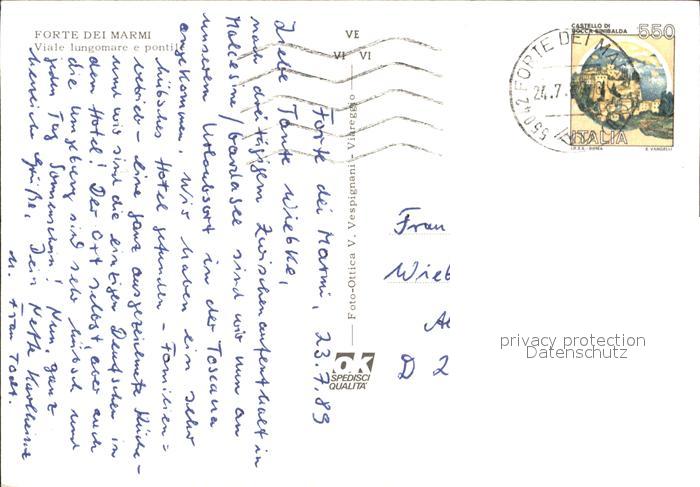 FORTE DEI MARMI
Viale lungomare e pontile
VE
VI VI
CASTELLO DI
ROCCA SINIBALDA
550
ITALIA
I.P.Z.S. - ROMA
E. VANGELLI
55042 FORTE DEI MA
24.7.
Foto-Ottica V. Vespignani - Viareggio
ok
SPEDISCI
QUALITA'
Forte dei Marmi, 23.7.89
Liebe Tante Wiebke,
nach dreitägigem Zwischenaufenthalt in
Malcesine/Gardasee sind wir nun an
unserem Urlaubsort in der Toscana
angekommen. Wir haben ein sehr
hübsches Hotel gefunden - Familien=
betrieb - eine ganz ausgezeichnete Küche -
und wir sind die einzigen Deutschen in
dem Hotel! Der Ort selbst, aber auch
die Umgebung sind sehr hübsch und
jeden Tag Sonnenschein! Nun, ganz
herzliche Grüße, Dein Neffe Karlheinz
u. Frau Todt.
Frau
Wieb
D 2
privacy protection
Datenschutz